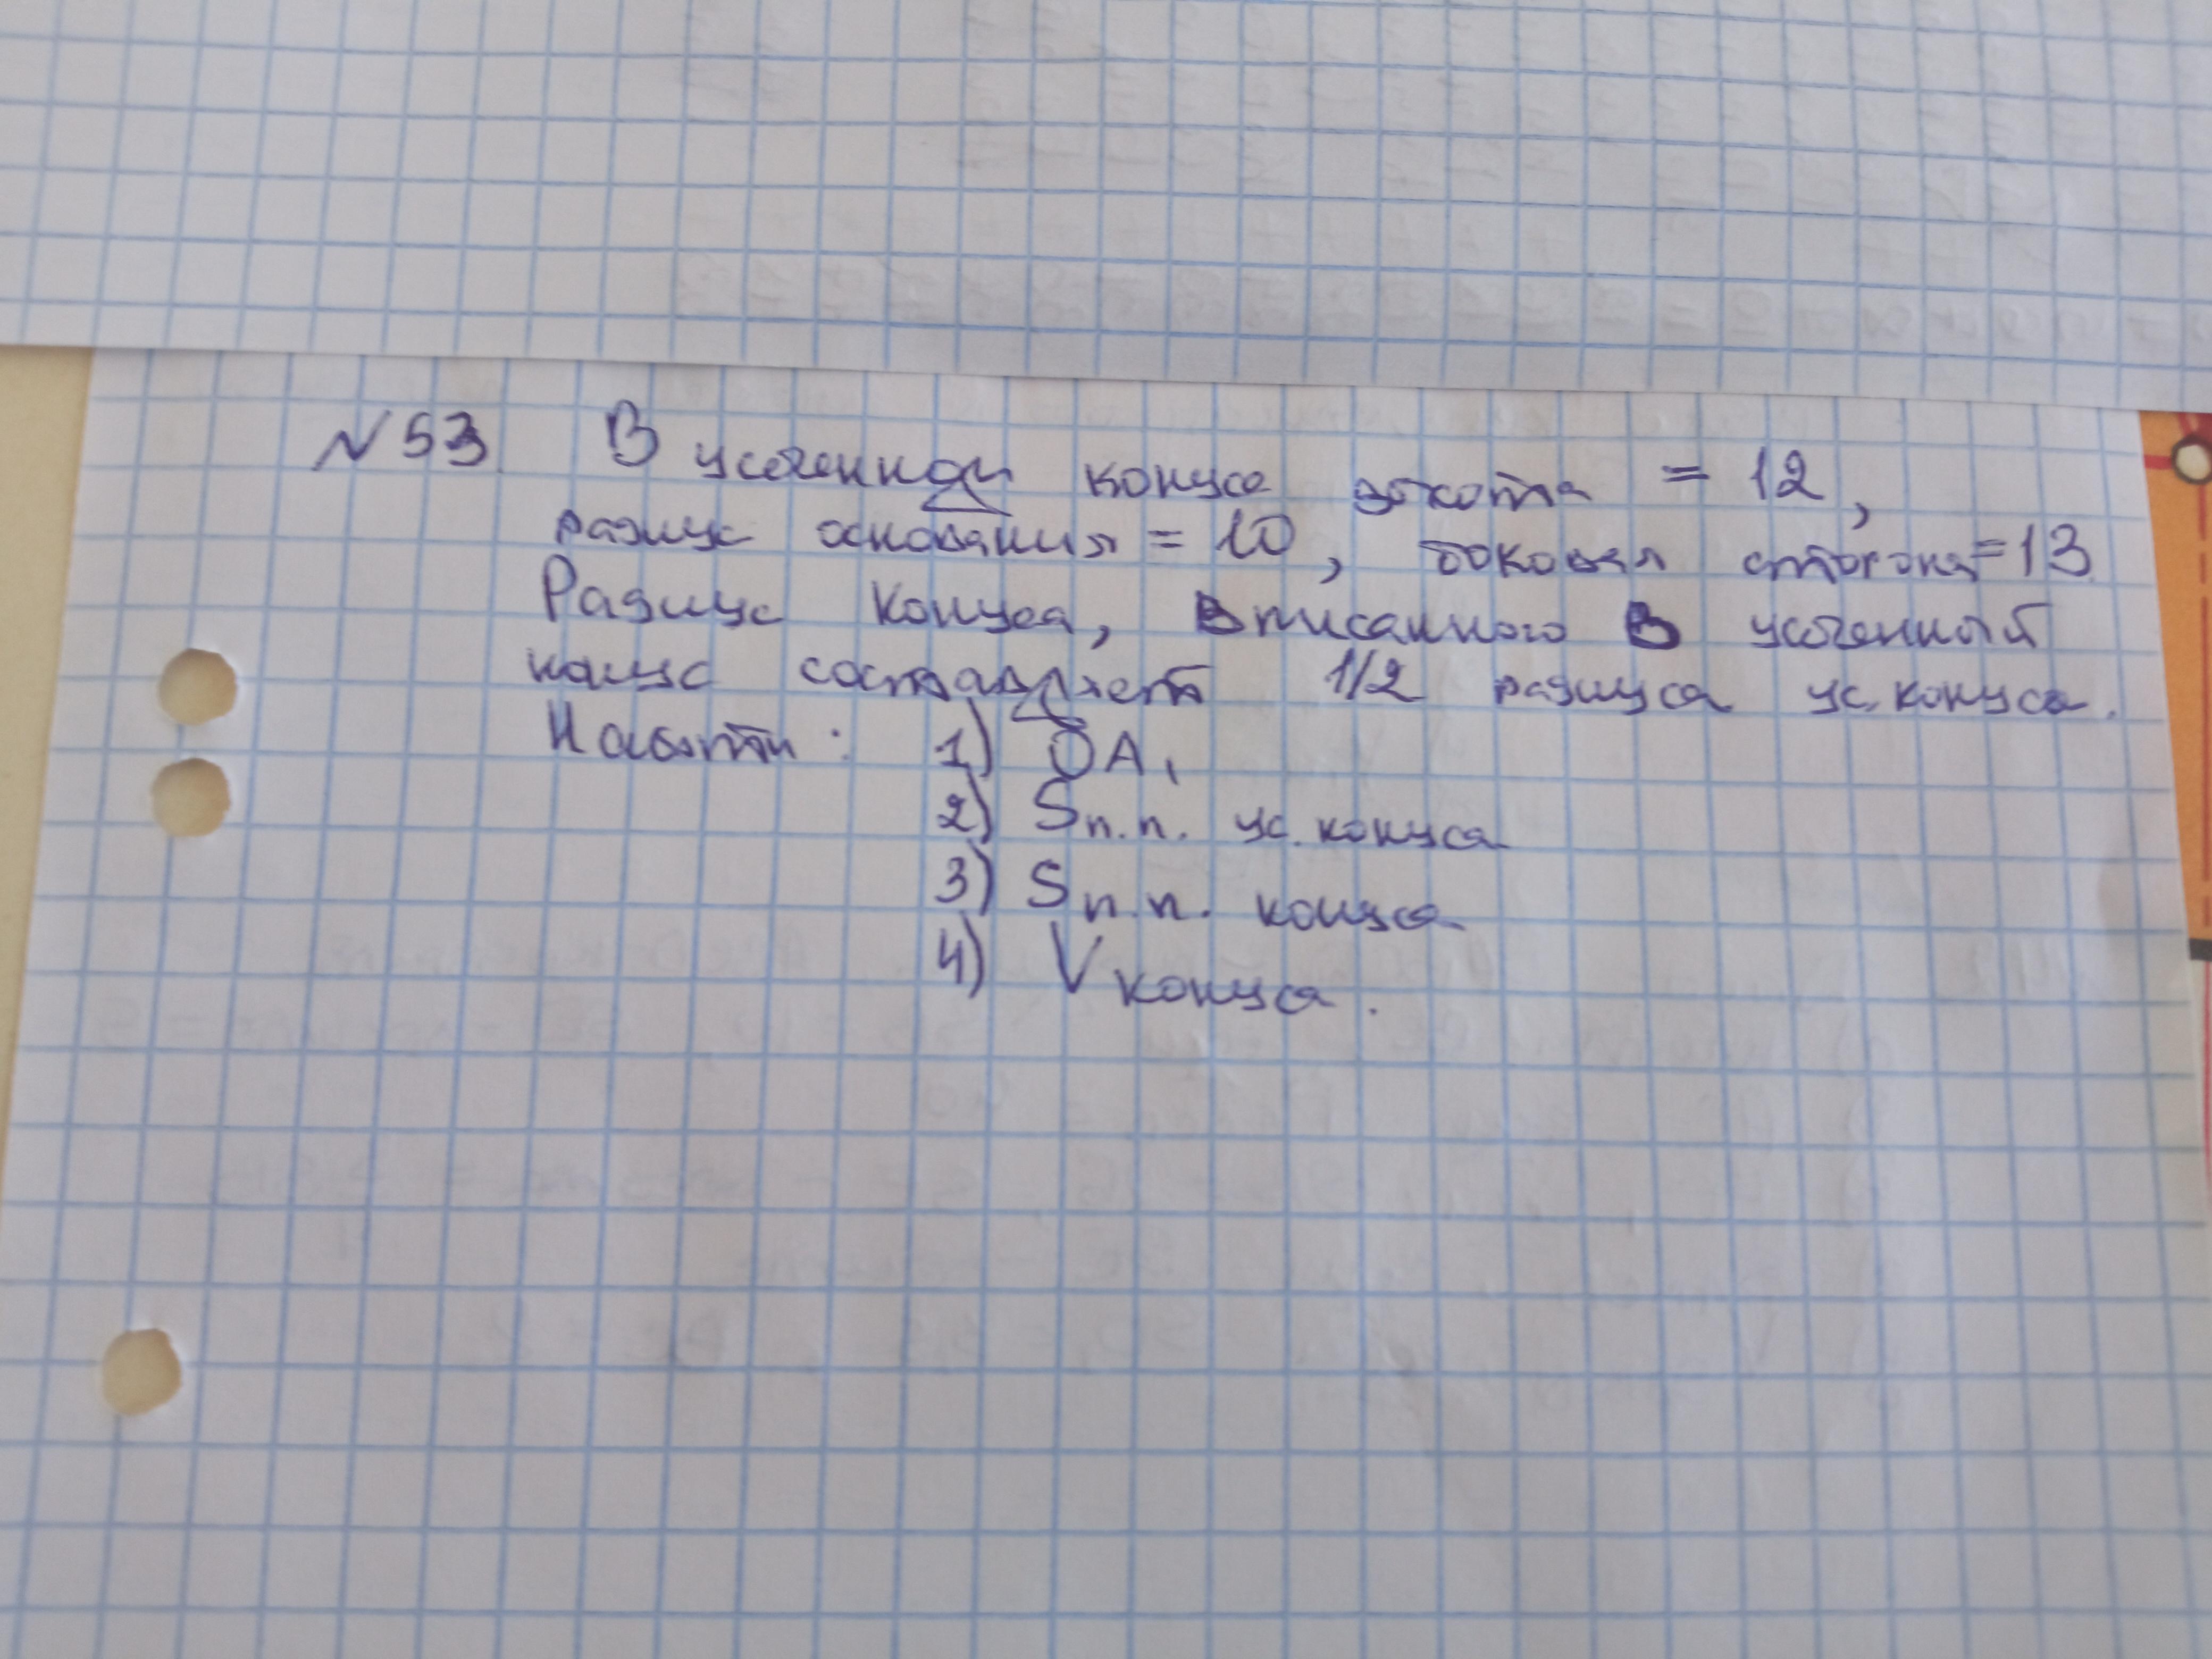 № 53 В усеченном конусе высота = 12,
радиус основания = 10, боковая сторона = 13
Радиус конуса, вписанного в усеченный
конус составляет 1/2 радиуса ус. конуса.
Найти: 1) OA₁
2) Sп.п. ус. конуса
3) Sп.п. конуса
4) Vконуса.